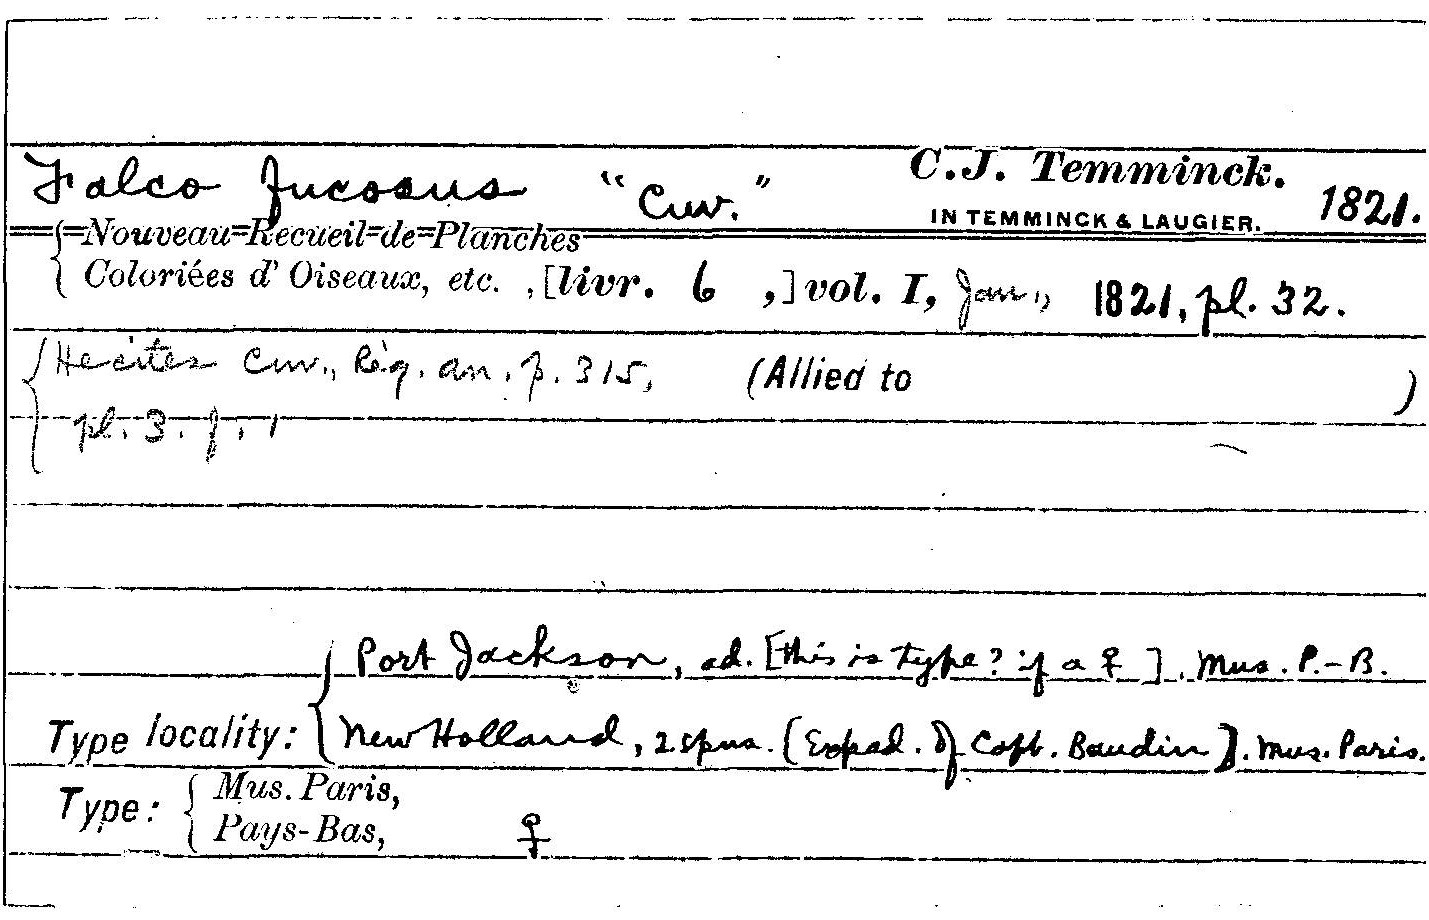 Falco fucosus "Cuv." C.J. Temminck. 1821.
IN TEMMINCK & LAUGIER.
Nouveau Recueil de Planches
Coloriées d' Oiseaux, etc. , [livr. 6 ,] vol. I, Jan., 1821, pl. 32.
He cites Cuv., Règ. an. p. 315, (Allied to )
pl. 3. f. 1
Port Jackson, ad. [this is type? if a ♀ ]. Mus. P.-B.
Type locality: New Holland, 2 spns. [Exped. of Capt. Baudin]. Mus. Paris.
Type: Mus. Paris,
Pays-Bas, ♀